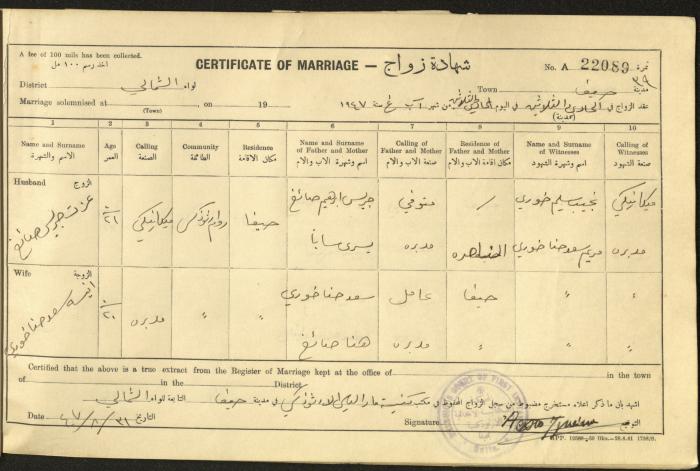 A fee of 100 mils has been collected.
اخذ رسم ١٠٠ مل
CERTIFICATE OF MARRIAGE — شهادة زواج
No. A 22089 نمرة
٣٩
District لواء الشمالي
Town حيفا مدينة
Marriage solemnised at , on 19
(Town)
عقد الزواج في اليوم الحادي والثلاثين من شهر آب سنة ١٩٤٧
(مدينة)
1 2 3 4 5 6 7 8 9 10
Name and Surname الاسم والشهرة
Age العمر
Calling الصنعة
Community الطائفة
Residence مكان الاقامة
Name and Surname of Father and Mother اسم وشهرة الاب والام
Calling of Father and Mother صنعة الاب والام
Residence of Father and Mother مكان اقامة الاب والام
Name and Surname of Witnesses اسم وشهرة الشهود
Calling of Witnesses صنعة الشهود
Husband الزوج
عزت جريس صائغ
٢١
ميكانيكي
روم ارثوذكس
حيفا
جريس ابرهيم صائغ
متوفي
نجيب سليم خوري
ميكانيكي
يسرى سابا
مدبره
مريم سعد حنا خوري
مدبره
Wife الزوجة
انيسه سعد حنا خوري
٢٠
مدبره
"
"
سعد حنا خوري
عامل
حيفا
"
"
هنا صائغ
مدبره
"
"
"
Certified that the above is a true extract from the Register of Marriage kept at the office of in the town
of in the District
اشهد بان ما ذكر اعلاه مستخرج مضبوط من سجل الزواج المحفوظ في مكتب كنيسة مار الياس الارثوذكسي في مدينة حيفا التابعة للواء الشمالي
Date ٣١/٨/٤٧ التاريخ
Signature التوقيع
GPP. 12588—50 Bks.—28.8.61 1758/6.